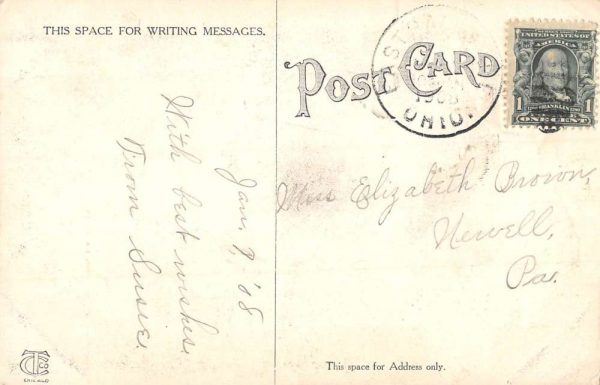 THIS SPACE FOR WRITING MESSAGES.
Jan. 9, '08
With best wishes.
From Susie.
CHICAGO
POST CARD
1908
OHIO.
SERIES 1902
UNITED STATES OF
AMERICA
1 FRANKLIN 1
ONE CENT
Miss Elizabeth Brown,
Newell,
Pa.
This space for Address only.